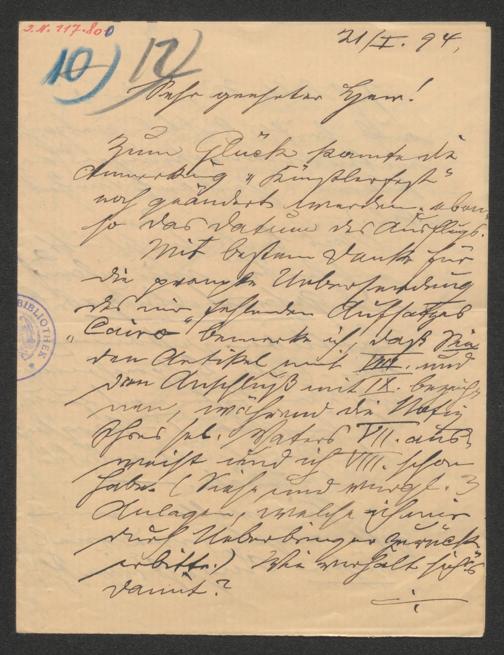 J.N. 117.800
10) 12)
21/I. 94,
Sehr geehrter Herr!
Zum Glück konnte die
Anmerkung „Künstlerfest"
noch geändert werden, eben-
so das Datum des Ausflugs.
Mit bestem Danke für
die prompte Uebersendung
des mir fehlenden Aufsatzes
„Cairo" bemerke ich, daß Sie
den Artikel mit VIII. und
den Anschluß mit IX. bezeich-
nen, während die Notiz
Ihres sel. Vaters VII. aus-
weist und ich VIII. schon
habe. (Siehe und vergl. 3
Anlagen, welche ich mir
durch Ueberbringer zurück
erbitte.) Wie verhält sich's
damit?
BIBLIOTHEK